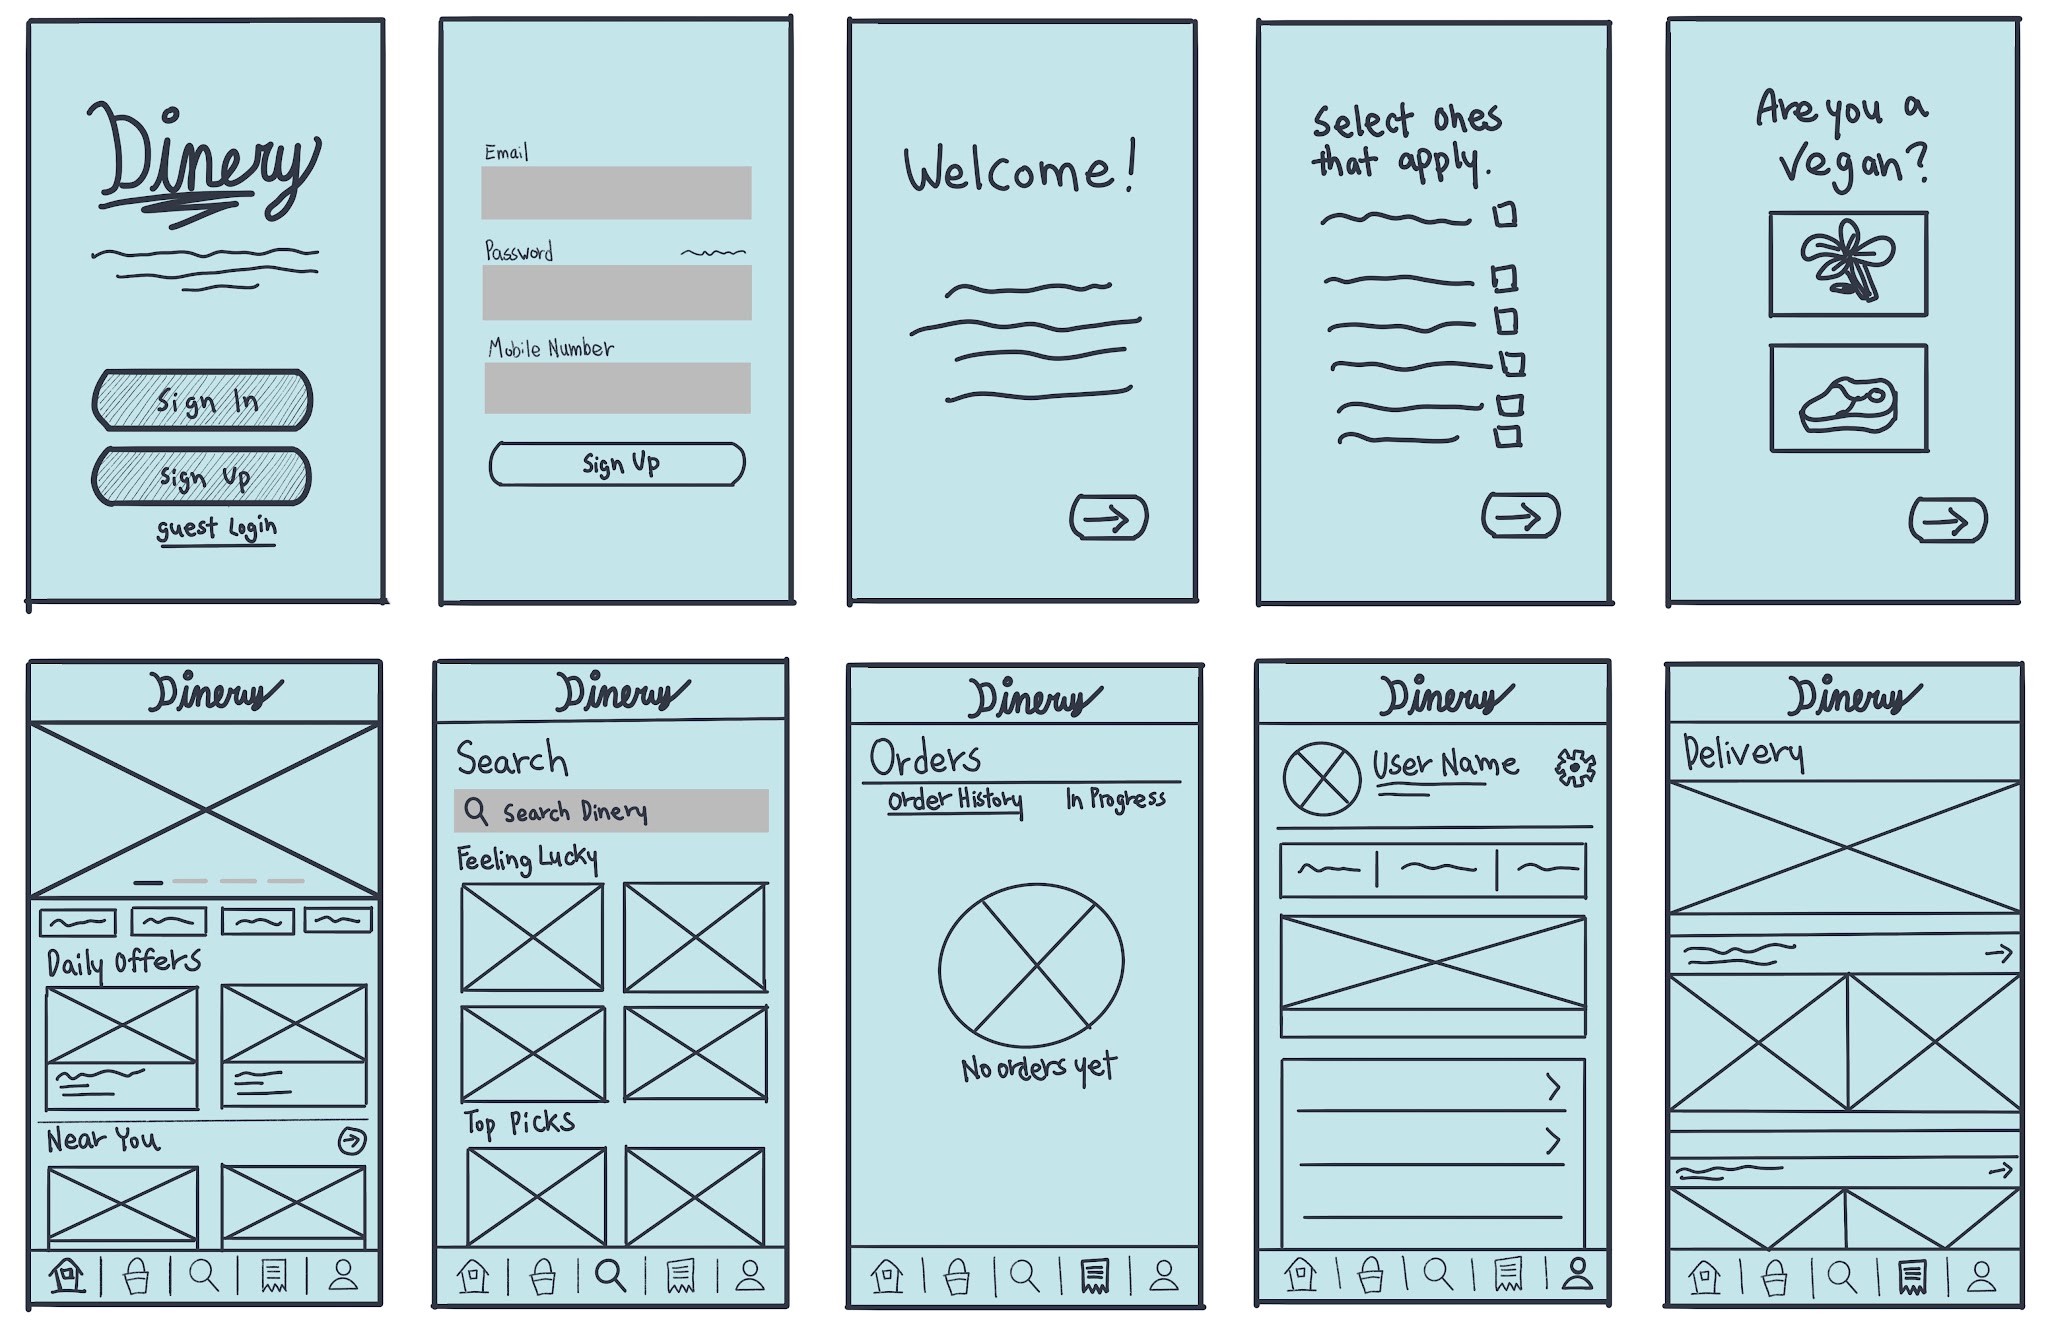 Dinery
Sign In
Sign Up
guest Login
Email
Password
Mobile Number
Sign Up
Welcome!
Select ones
that apply.
Are you a
vegan?
Dinery
Daily Offers
Near You
Dinery
Search
Search Dinery
Feeling Lucky
Top Picks
Dinery
Orders
Order History
In Progress
No orders yet
Dinery
User Name
Dinery
Delivery